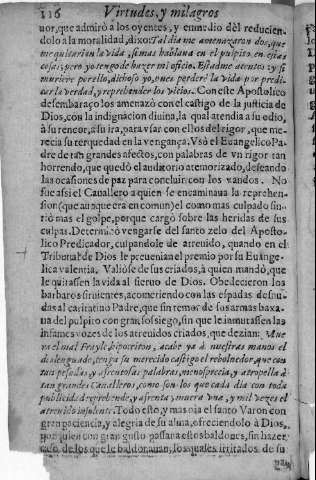 116 Virtudes, y milagros
uor, que admirò a los oyentes, y en medio dèl reducien-
dolo a la moralidad, dixo: Tal dia me amenazaron dos, que
me quitarian la vida, si mas hablaua en el pulpito en estas
cosas; pero yo tengo de hazer mi oficio. Estadme atentos: y si
muriere por ello, dichoso yo, pues perderè la vida por predi-
car la verdad, y reprehender los vicios. Con este Apostolico
desembaraço los amenazò con el castigo de la justicia de
Dios, con la indignacion diuina, la qual atendia a su odio,
à su rencor, à su ira, para vsar con ellos del rigor, que me-
recia su terquedad en la vengança. Vsò el Euangelico Pa-
dre de tan grandes afectos, con palabras de vn rigor tan
horrendo, que quedò el auditorio atemorizado, deseando
las ocasiones de paz para concluir con los vandos. No
fue assi el Cauallero a quien se encaminaua la reprehen-
sion (que aunque era en comun) el como mas culpado sin-
tiò mas el golpe, porque cargò sobre las heridas de sus
culpas. Determinò vengarse del santo zelo del Aposto-
lico Predicador, culpandole de atreuido, quando en el
Tribunal de Dios le preuenian el premio por su Euange-
lica valentia. Valiòse de sus criados, à quien mandò, que
le quitassen la vida al sieruo de Dios. Obedecieron los
barbaros siruientes, acometiendo con las espadas desnu-
das al caritatiuo Padre, que sin temor de sus armas baxa-
ua del pulpito con gran sosiego, sin que le inmutassen las
infames vozes de los atreuidos criados, que dezian: Mue
ra el mal Frayle hipocriton, acabe ya à nuestras manos el
deslenguado, tenga su merecido castigo el reboluedor, que con
tan pesadas, y afrentosas palabras, menosprecia, y atropella à
tan grandes Caualleros, como son los que cada dia con toda
publicidad reprehende, y afrenta; muera vna, y mil vezes el
atreuido insolente. Todo esto, y mas oìa el santo Varon con
gran paciencia, y alegria de su alma, ofreciendolo à Dios,
por quien con gran gusto passaua estos baldones, sin hazer
caso de los que le baldonauan, los quales irritados de su